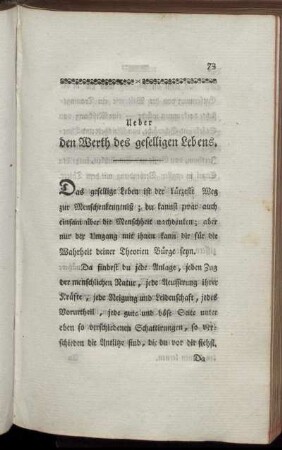 73
Ueber
den Werth des geselligen Lebens.
Das gesellige Leben ist der kürzeste Weg
zur Menschenkenntniß; du kannst zwar auch
einsam über die Menschheit nachdenken; aber
nur der Umgang mit ihnen kann dir für die
Wahrheit deiner Theorien Bürge seyn.
Da findest du jede Anlage, jeden Zug
der menschlichen Natur, jede Aeusserung ihrer
Kräfte, jede Neigung und Leidenschaft, jedes
Vorurtheil, jede gute und böse Seite unter
eben so verschiedenen Schattirungen, so ver-
schieden die Antlitze sind, die du vor dir siehst.
Da